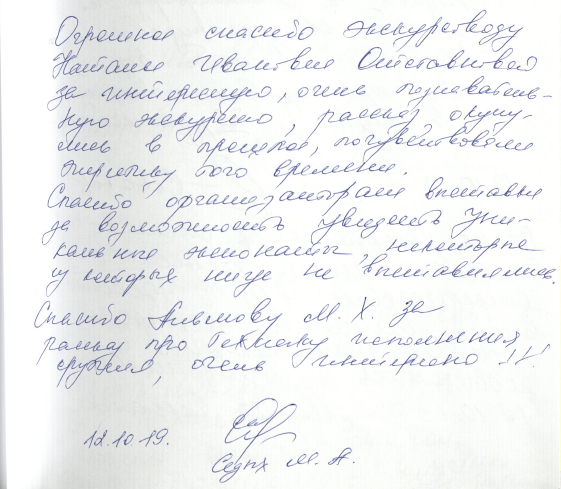 Огромное спасибо экскурсоводу
Наталии Ивановне Отставновой
за интересную, очень познаватель-
ную экскурсию, рассказ, окуну-
лись в прошлое, почувствовали
энергетику того времени.
Спасибо организаторам выставки
за возможность увидеть уни-
кальные экспонаты, некоторые
из которых нигде не выставлялись.
Спасибо М. Х. за
рассказ про технику исполнения
очень интересно !!!
12.10.19.
Седых М. А.